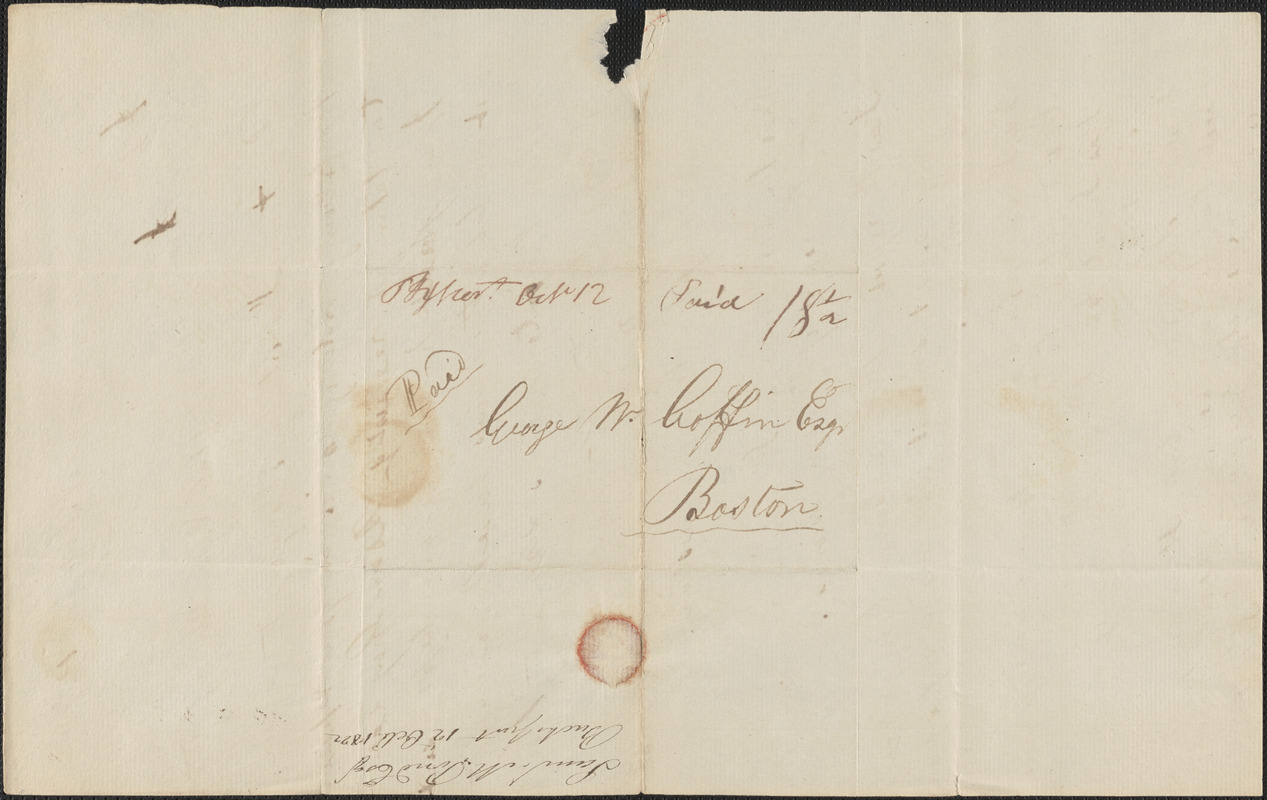 Bksport Octr 12 Paid 18½
Paid
George W. Coffin Esqr
Boston
Saml. M. Pond Esqr
Bucksport 12 Oct. 1822